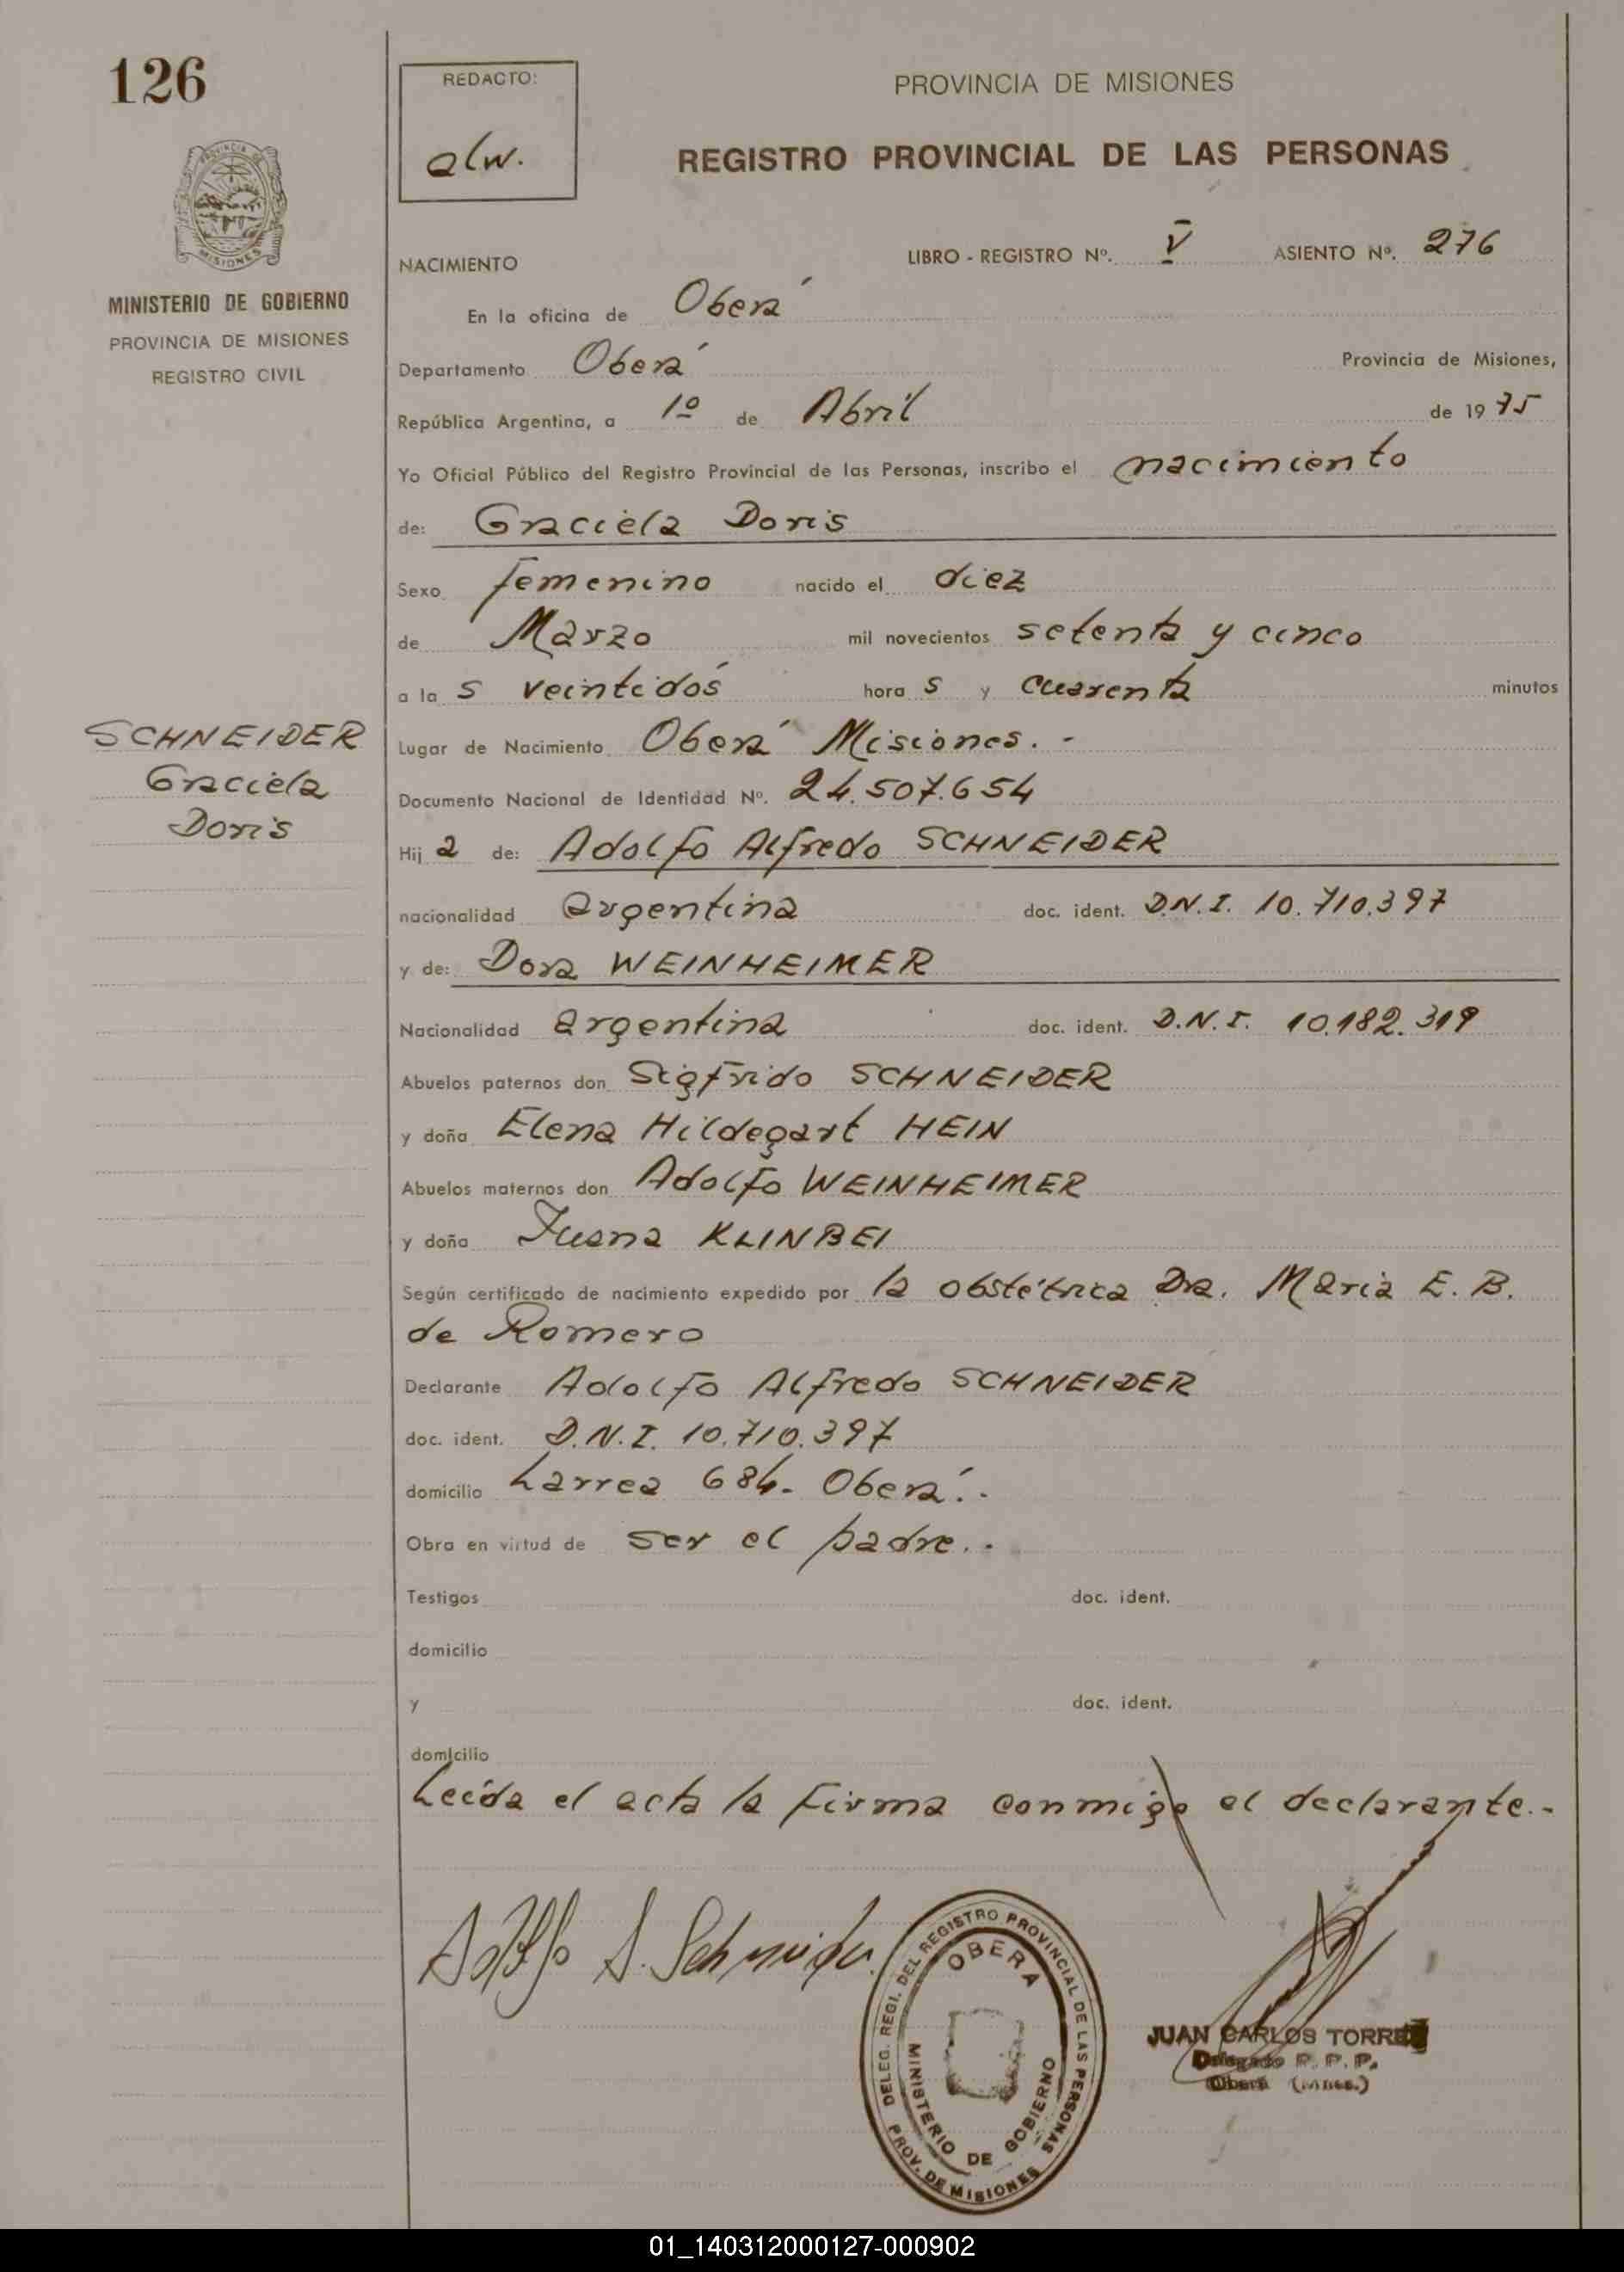 126
REDACTO:
alw.
PROVINCIA DE MISIONES
REGISTRO PROVINCIAL DE LAS PERSONAS
PROVINCIA DE
MISIONES
MINISTERIO DE GOBIERNO
PROVINCIA DE MISIONES
REGISTRO CIVIL
NACIMIENTO LIBRO - REGISTRO Nº. V ASIENTO Nº. 276
En la oficina de Oberá
Departamento Oberá Provincia de Misiones,
República Argentina, a 1º de Abril de 1975
Yo Oficial Público del Registro Provincial de las Personas, inscribo el nacimiento
de: Graciela Doris
Sexo femenino nacido el diez
de Marzo mil novecientos setenta y cinco
a las veintidós horas y cuarenta minutos
SCHNEIDER
Graciela
Doris
Lugar de Nacimiento Oberá Misiones. -
Documento Nacional de Identidad Nº. 24.507.654
Hija de: Adolfo Alfredo SCHNEIDER
nacionalidad argentina doc. ident. D.N.I. 10.710.397
y de: Dora WEINHEIMER
Nacionalidad argentina doc. ident. D.N.I. 10.182.319
Abuelos paternos don Sigfrido SCHNEIDER
y doña Elena Hildegart HEIN
Abuelos maternos don Adolfo WEINHEIMER
y doña Juana KLINBEI
Según certificado de nacimiento expedido por la obstétrica Dra. Maria E. B.
de Romero
Declarante Adolfo Alfredo SCHNEIDER
doc. ident. D.N.I. 10.710.397
domicilio Larrea 684. Oberá. -
Obra en virtud de ser el padre. -
Testigos doc. ident.
domicilio
y doc. ident.
domicilio
Leída el acta la firma conmigo el declarante. -
Adolfo A. Schneider
DELEG. REGI. DEL REGISTRO PROVINCIAL DE LAS PERSONAS
OBERA
MINISTERIO DE GOBIERNO
PROV. DE MISIONES
JUAN CARLOS TORRES
Delegado R. P. P.
Oberá (Mnes.)
01_140312000127-000902